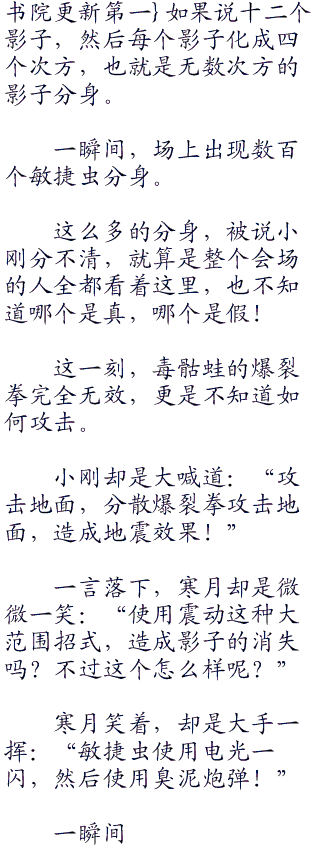 书院更新第一}如果说十二个
影子，然后每个影子化成四
个次方，也就是无数次方的
影子分身。
一瞬间，场上出现数百
个敏捷虫分身。
这么多的分身，被说小
刚分不清，就算是整个会场
的人全都看着这里，也不知
道哪个是真，哪个是假！
这一刻，毒骷蛙的爆裂
拳完全无效，更是不知道如
何攻击。
小刚却是大喊道：“攻
击地面，分散爆裂拳攻击地
面，造成地震效果！”
一言落下，寒月却是微
微一笑：“使用震动这种大
范围招式，造成影子的消失
吗？不过这个怎么样呢？”
寒月笑着，却是大手一
挥：“敏捷虫使用电光一
闪，然后使用臭泥炮弹！”
一瞬间